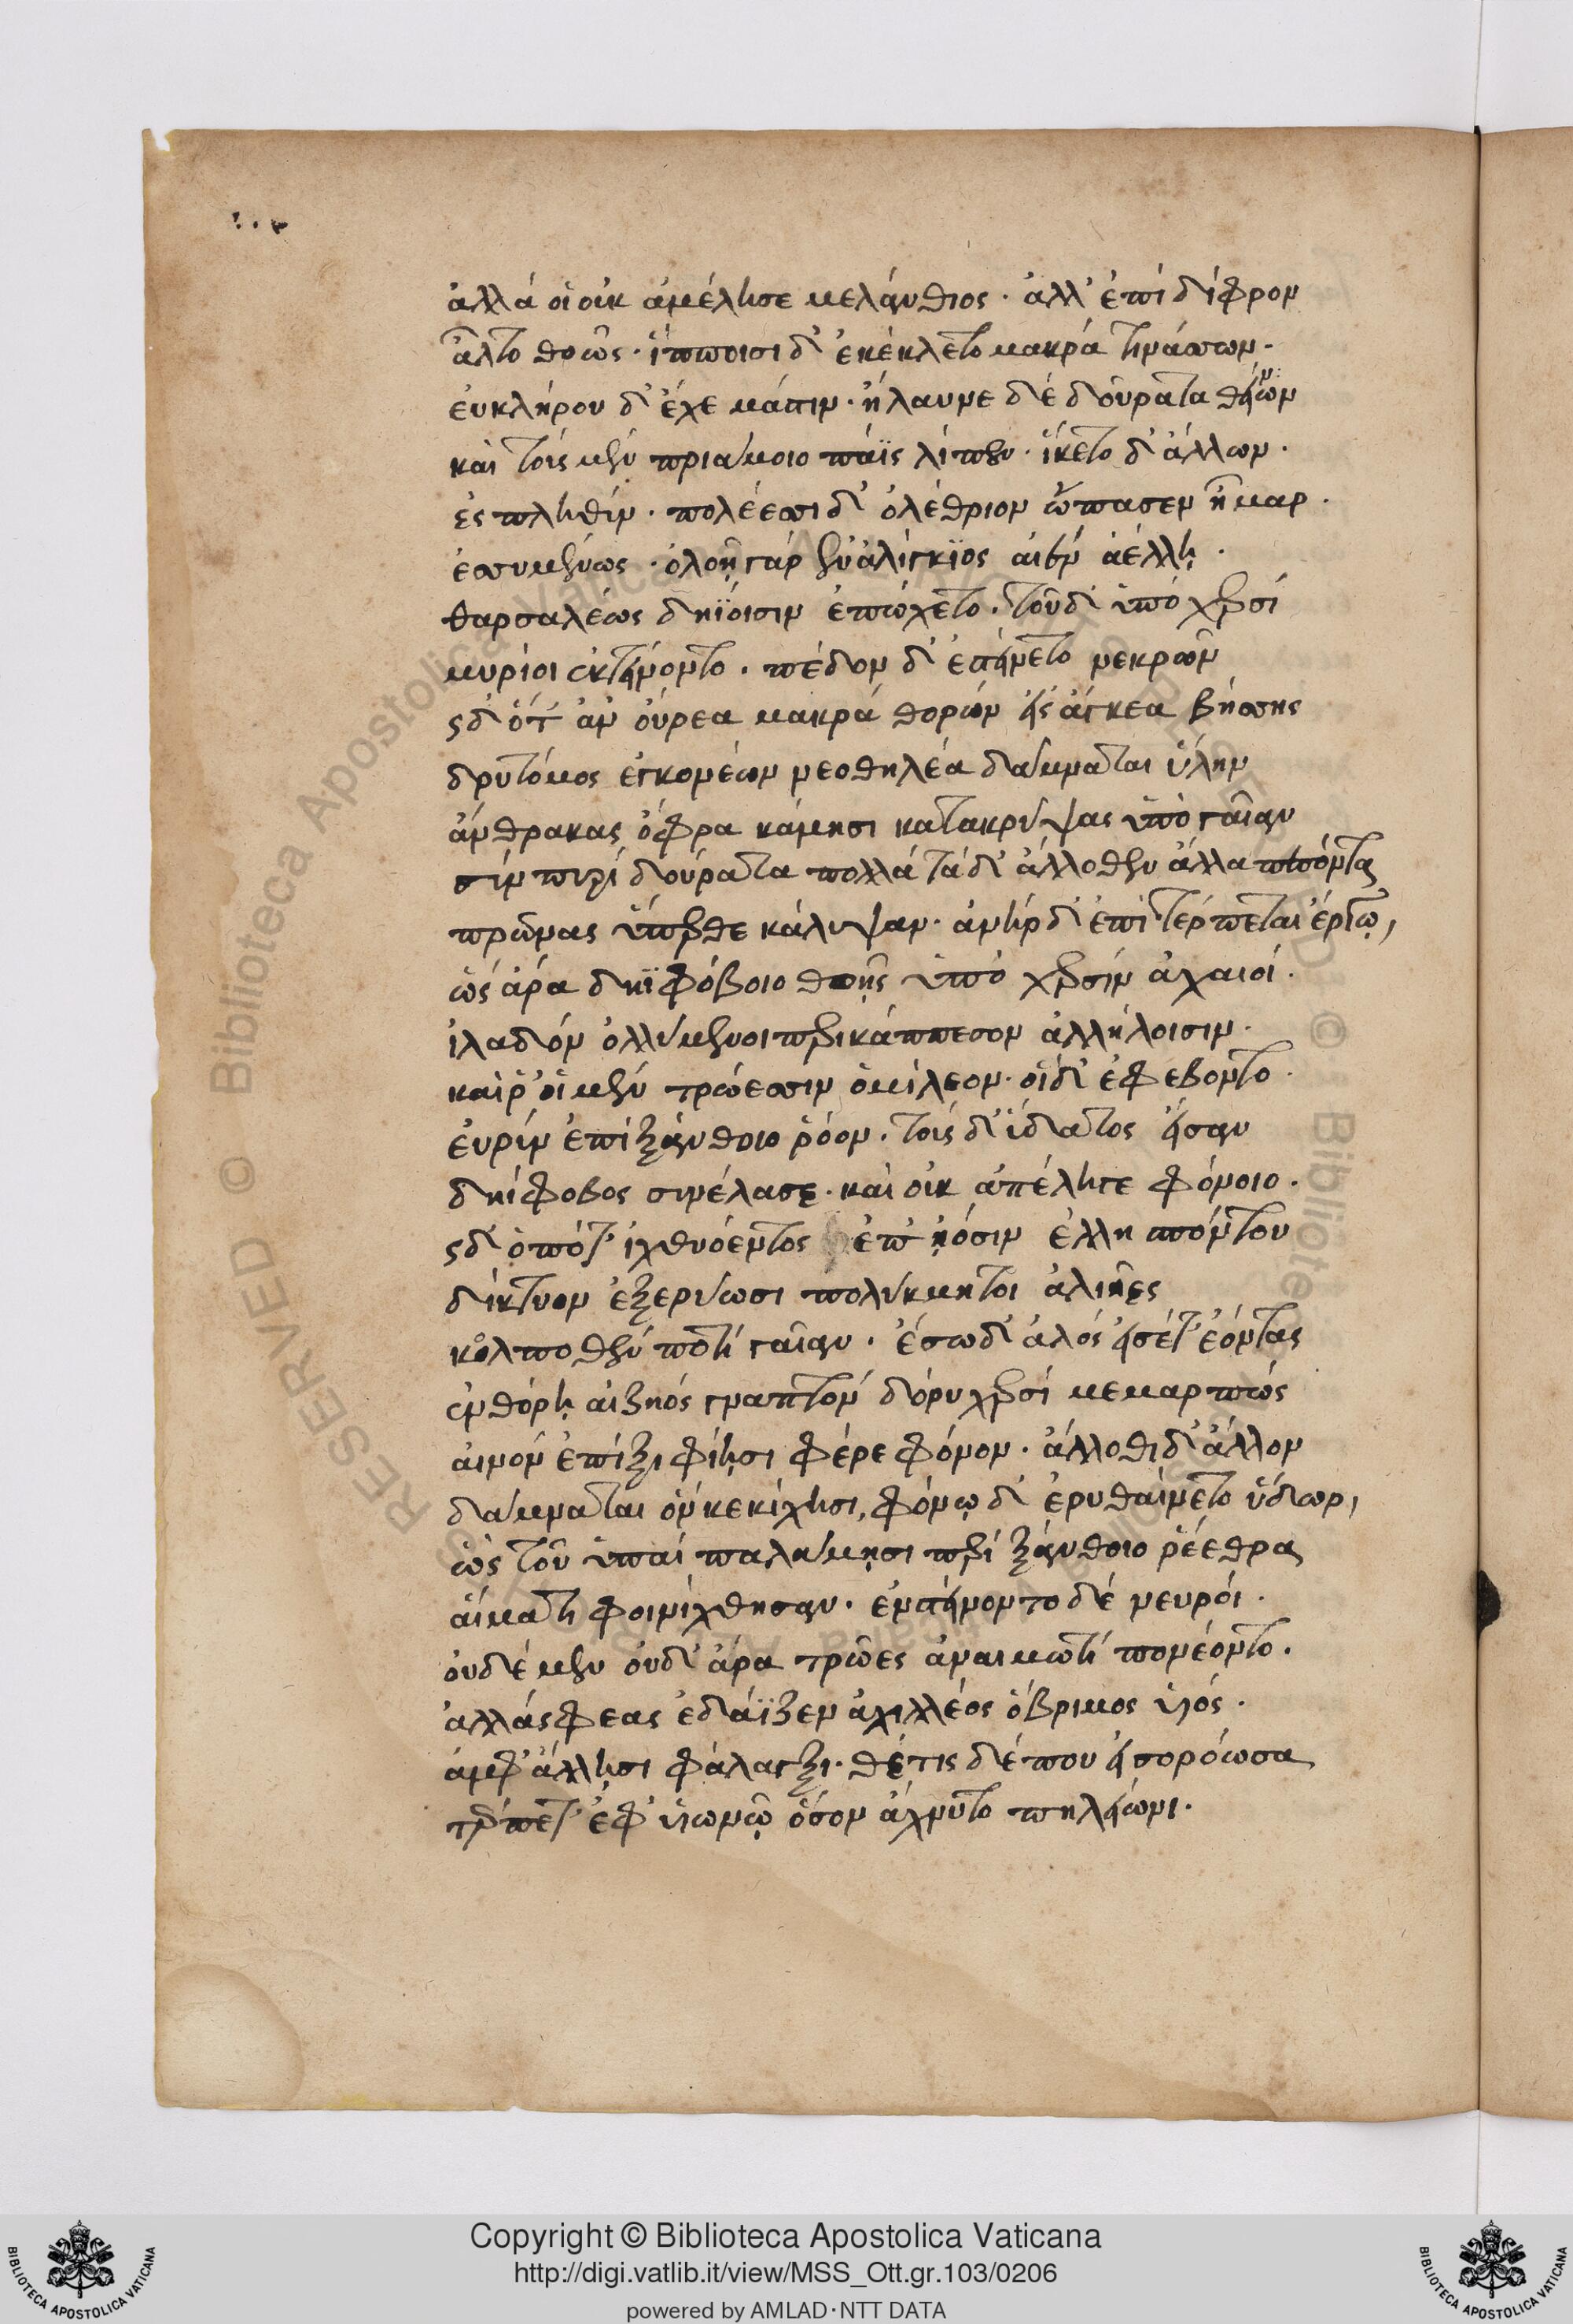 ἀλλά οἱ οὐκ ἀμέλησε μελάνθιος · ἀλλ' ἐπὶ δίφρον
ἆλτο θοῶς · ἵπποισι δ' ἐκέκλετο μακρὰ τινάσσων ·
εὐκλήρου δ' ἔχε μάστιν · ἤλαυνε δὲ δούρατα θείνων
καὶ τοὺς μὲν πριάμοιο πάϊς λίπεν · ἵκετο δ' ἄλλων ·
ἐς πληθὺν · πολέεσσι δ' ὀλέθριον ὤπασεν ἦμαρ ·
ἐσσυμένως · ὀλοῇ γὰρ ἐναλίγκϊος αἰὲν ἀέλλῃ ·
θαρσαλέως δηΐοισιν ἐπώχετο · τοῦ δ' ὑπὸ χερσὶ
μυρίοι ἐκτείνοντο · πέδον δ' ἐστείνετο νεκρῶν
ὡς δ' ὅτ' ἀν' οὔρεα μακρὰ θορὼν εἰς ἄγκεα βήσσης
δρυτόμος ἐγκονέων νεοθηλέα δάμναται ὕλην
ἄνθρακας ὄφρα κάμῃσι κατακρύψας ὑπὸ γαῖαν
σὺν πυρὶ δούρατα πολλὰ τὰ δ' ἄλλοθεν ἄλλα πεσόντα
πρῶνας ὕπερθε κάλυψαν · ἀνὴρ δ' ἐπιτέρπεται ἔργῳ,
ὣς ἄρα δηϊφόβοιο θοῇς ὑπὸ χερσὶν ἀχαιοί ·
ἰλαδὸν ὀλλύμενοι περικάππεσον ἀλλήλοισιν ·
καί ῥ' οἱ μὲν τρώεσσιν ὁμίλεον · οἱ δ' ἐφέβοντο ·
εὐρὺν ἐπὶ ξάνθοιο ῥόον · τοὺς δ' ὕδατος εἴσαν
δηίφοβος συνέλασε · καὶ οὐκ ἀπέληγε φόνοιο ·
ὡς δ' ὁπότ' ἰχθυόεντος ἐπ' ᾐόσιν ἕλλη πόντου
δίκτυον ἐξερύωσι πολύκμητοι ἁλιῆες
κοῖλπο θεν ποτὶ γαῖαν · ἔσω δ' ἁλὸς εἰσέτ' ἐόντας
ἐνθόρῃ αἰζηὸς γναπτὸν δόρυ χερσὶ μεμαρπὼς
αἰνὸν ἐπὶ ξιφίῃσι φέρε φόνον · ἄλλοθι δ' ἄλλον
δάμναται ὅν κε κίχῃσι, φόνῳ δ' ἐρυθαίνετο ὕδωρ,
ὣς τοῦ ὑπαὶ παλάμῃσι περὶ ξάνθοιο ῥέεθρα
αἵματι φοινίχθησαν · ἐνστείνοντο δὲ νευροί ·
οὐδὲ μὲν οὐδ' ἄρα τρῶες ἀναιμωτὶ πονέοντο ·
ἀλλά σφεας ἐδάϊζεν ἀχιλλέος ὄβριμος υἱός ·
ἀμφ' ἄλλῃσι φάλαγξι · θέτις δέ που εἰσορόωσα
τέρπετ' ἐφ' υἱωνῷ ὅσον ἄχνυτο πηλείωνι ·
Copyright © Biblioteca Apostolica Vaticana
http://digi.vatlib.it/view/MSS_Ott.gr.103/0206
powered by AMLAD·NTT DATA